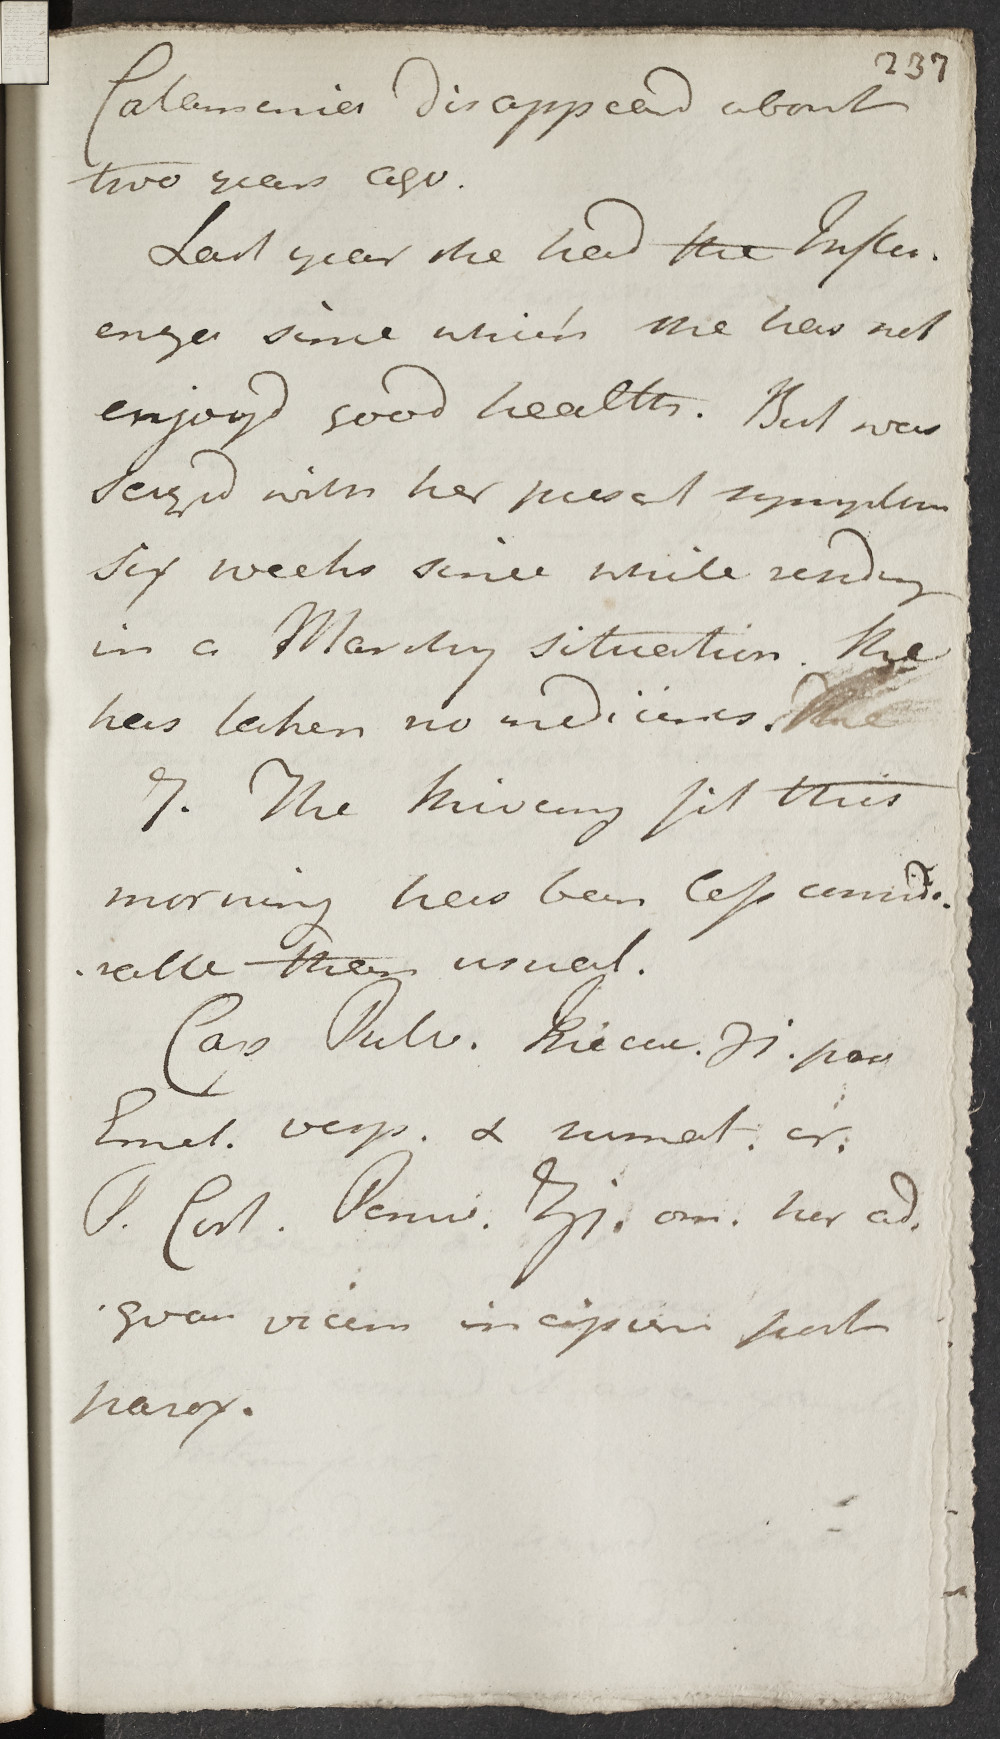 237
Catamenia disappeard about
two years ago.
Last year she had the Influ.
enza since which she has not
enjoyd good health. But was
seized with her present symptoms
six weeks since while residing
in a Marshy situation. She
has taken no medicines. The
7. The shivering fit this
morning has been less conside.
rable than usual.
Cap Pulv. Ipecac. ʒi. pro
Emet. vesp. & sumat. cr.
P. Cort. Peruv. ʒj. om. hor ad.
quar vicem incipien post
parox.